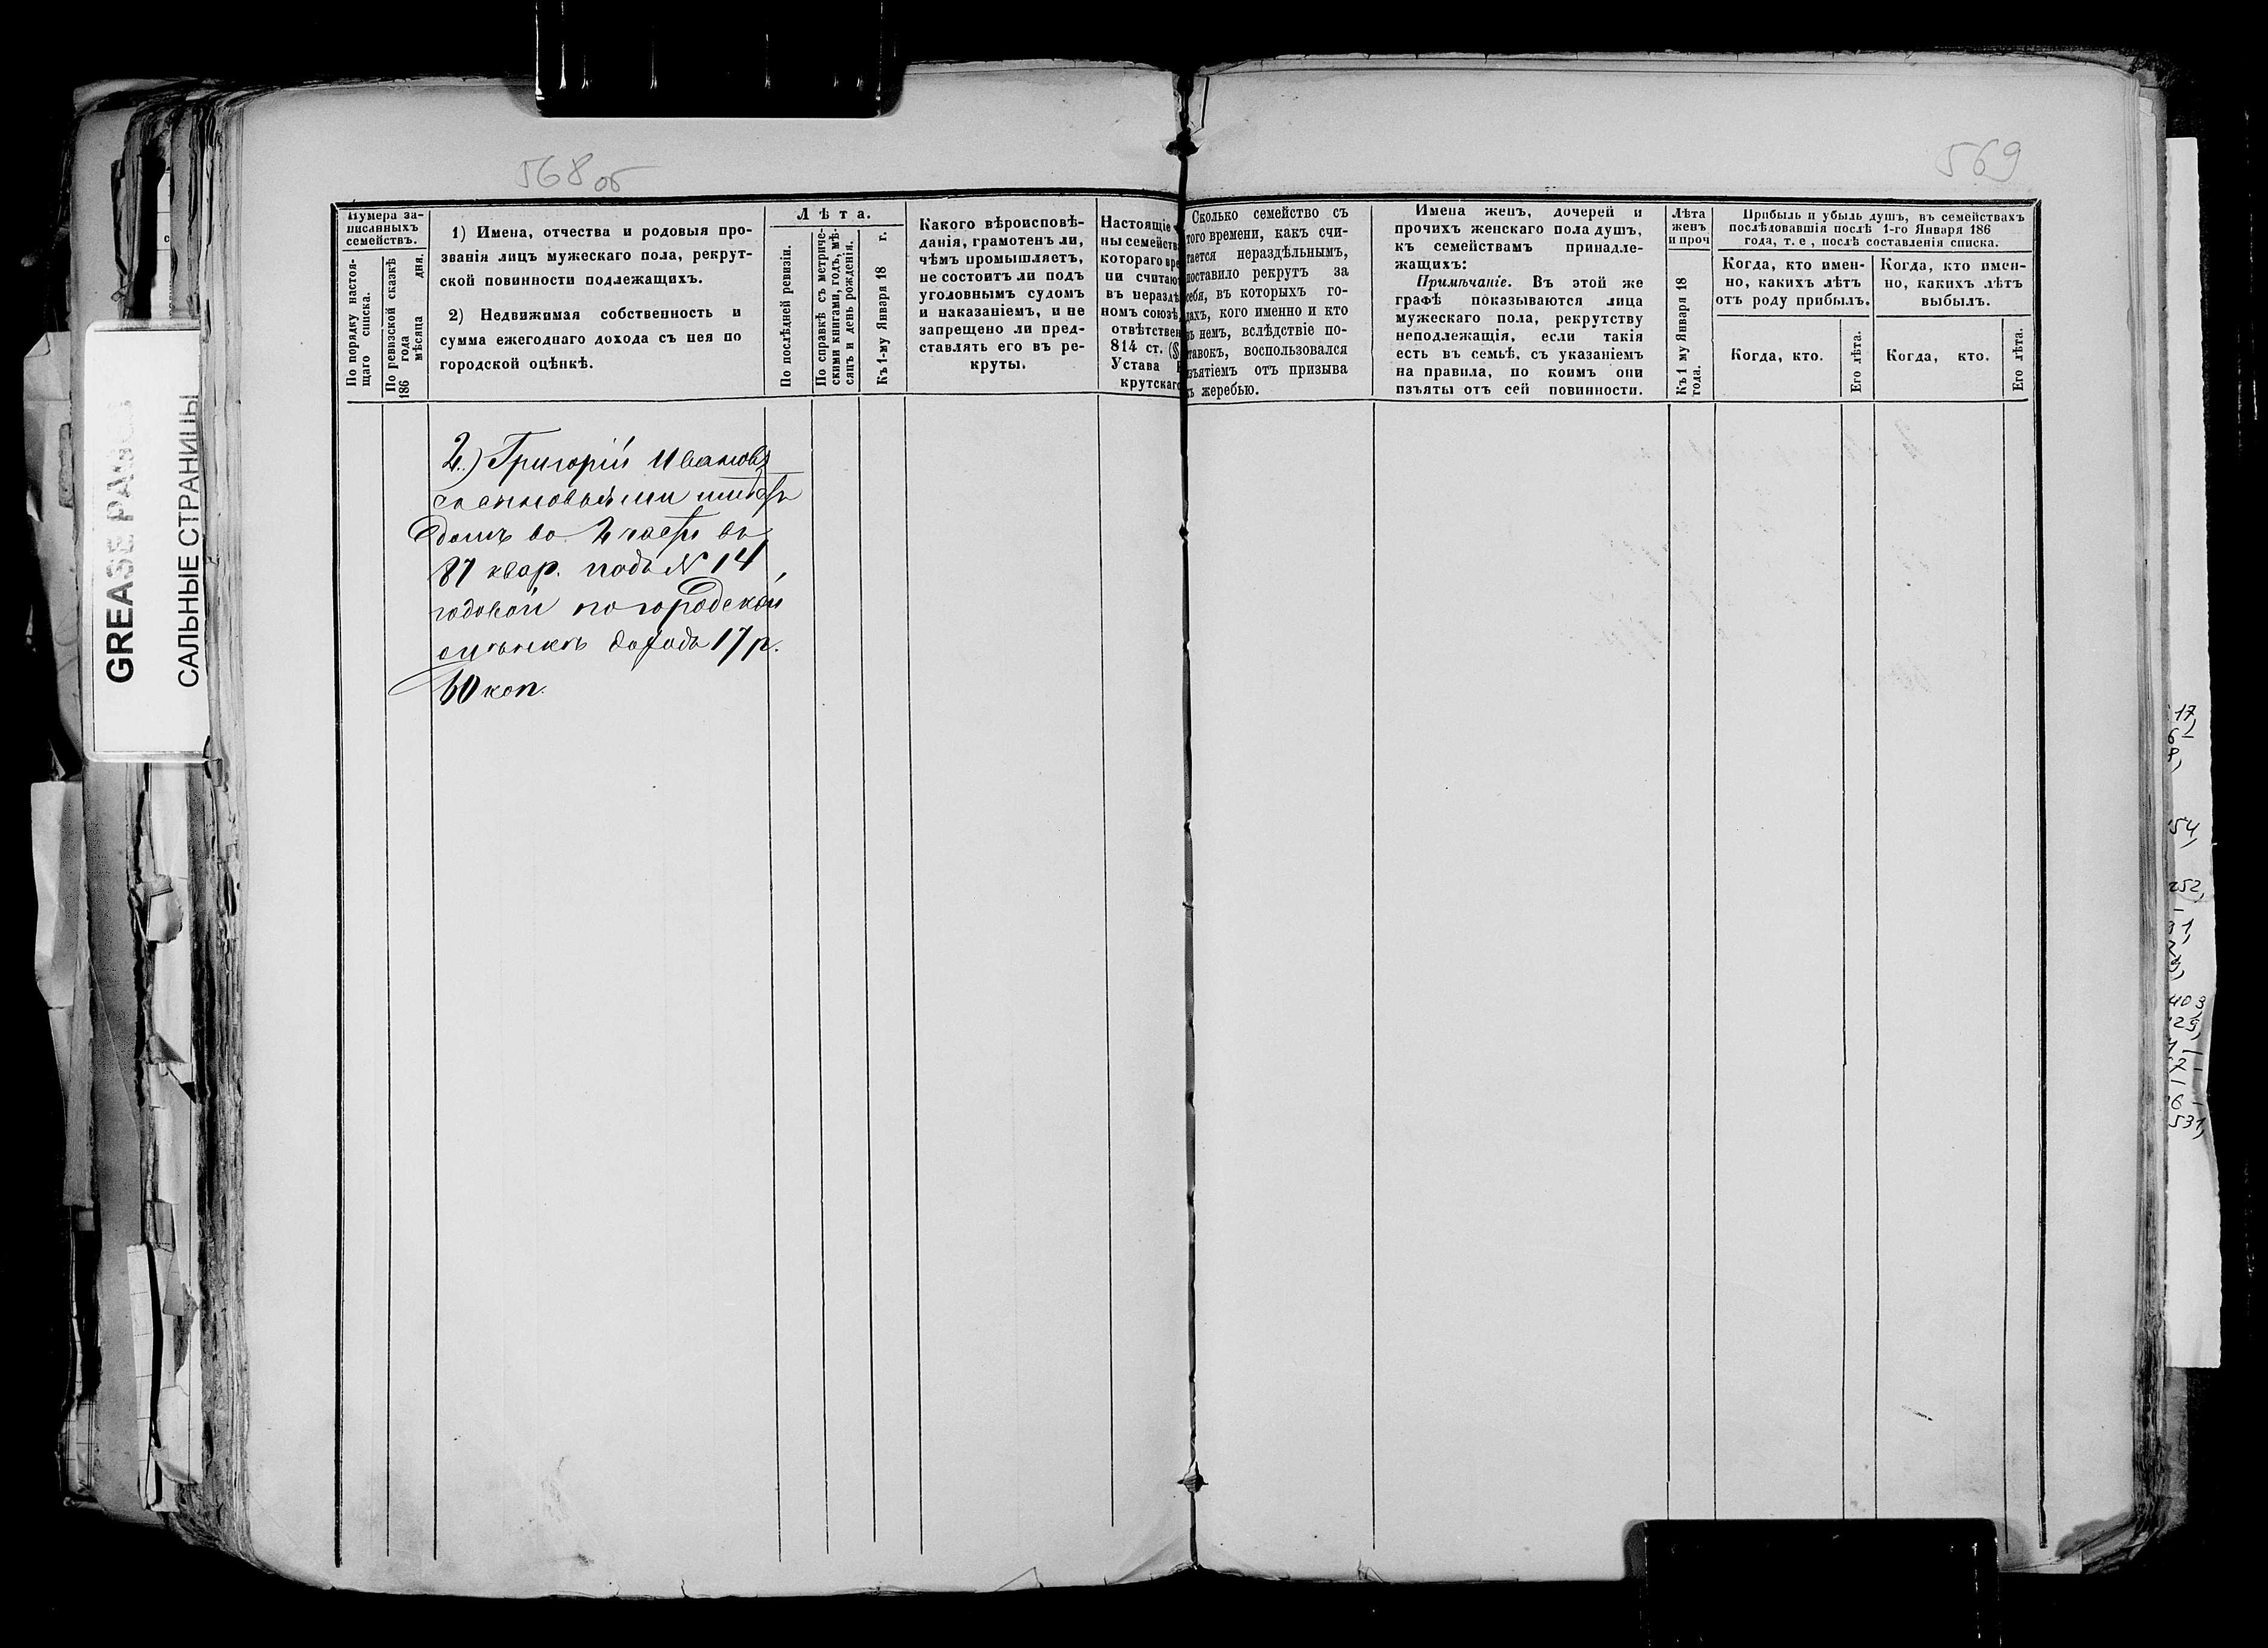 568 об
569
GREASE PAGES
САЛЬНЫЕ СТРАНИЦЫ
Нумера за-
писанныхъ
семействъ.
По порядку настоя-
щаго списка.
По ревизской сказкѣ
186 года
мѣсяца дня.
1) Имена, отчества и родовыя про-
званія лицъ мужескаго пола, рекрут-
ской повинности подлежащихъ.
2) Недвижимая собственность и
сумма ежегоднаго дохода съ нея по
городской оцѣнкѣ.
Лѣта.
По послѣдней ревизіи.
По справкѣ съ метриче-
скими книгами, годъ, мѣ-
сяцъ и день рожденія.
Къ 1-му Января 18 г.
Какого вѣроисповѣ-
данія, грамотенъ ли,
чѣмъ промышляетъ,
не состоитъ ли подъ
уголовнымъ судомъ
и наказаніемъ, и не
запрещено ли пред-
ставлять его въ ре-
круты.
Настоящіе
ны семейств
котораго вре
ни считаю
въ нераздѣ
номъ союзѣ,
отвѣтствен
814 ст. (§
Устава Р
крутскаго
Сколько семейство съ
того времени, какъ счи-
тается нераздѣльнымъ,
поставило рекрутъ за
себя, въ которыхъ го-
дахъ, кого именно и кто
въ немъ, вслѣдствіе по-
ставокъ, воспользовался
изъятіемъ отъ призыва
къ жеребью.
Имена женъ, дочерей и
прочихъ женскаго пола душъ,
къ семействамъ принадле-
жащихъ:
Примѣчаніе. Въ этой же
графѣ показываются лица
мужескаго пола, рекрутству
неподлежащія, если такія
есть въ семьѣ, съ указаніемъ
на правила, по коимъ они
изъяты отъ сей повинности.
Лѣта
женъ
и проч
Къ 1 му Января 18
года.
Прибыль и убыль душъ, въ семействахъ
послѣдовавшія послѣ 1-го Января 186
года, т. е , послѣ составленія списка.
Когда, кто имен-
но, какихъ лѣтъ
отъ роду прибылъ.
Когда, кто.
Его лѣта.
Когда, кто имен-
но, какихъ лѣтъ
выбылъ.
Когда, кто.
Его лѣта.
2.) Григорій Ивановъ
съ сыновьями
домъ во 2 части въ
87 квар. подъ N 14,
годовой по городской
оцѣнкѣ доходъ 17 р.
60 коп.
17,
54,
252,
531,